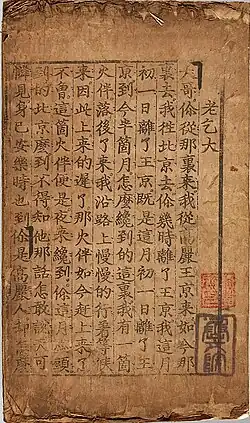 老乞大
大哥伱從那裏来我從高麗王京来如今那
裏去我徃北京去伱幾時離了王京我這月
初一日離了王京既是這月初一日離了王
京到今半箇月怎麽纔到的這裏我有一箇
火伴落後了来我沿路上慢慢的行着等候
来因此上来的遲了那火伴如今赶上来了
不曾這箇火伴便是夜来纔到伱這月盡頭
到的北京麽到不得知他那話怎敢說天可
憐見身已安樂時也到伱是高麗人却怎麽